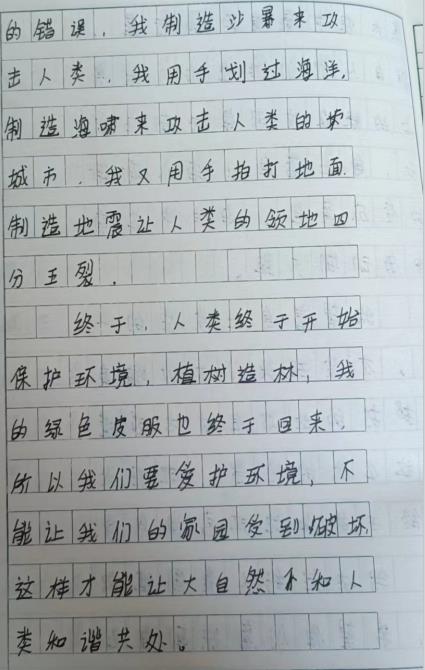 的错误，我制造沙暴来攻
击人类，我用手划过海洋，
制造海啸来攻击人类的
城市，我又用手拍打地面，
制造地震让人类的领地四
分五裂。
终于，人类终于开始
保护环境，植树造林，我
的绿色皮服也终于回来，
所以我们要爱护环境，不
能让我们的家园受到破坏，
这样才能让大自然和人
类和谐共处。